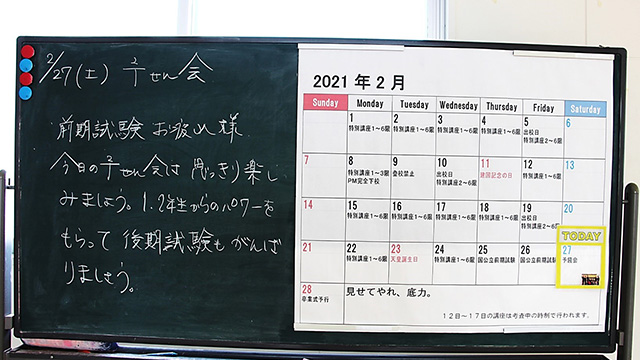 2/27(土) 予せん会
前期試験 お疲れ様
今日の予せん会は思いっきり楽し
みましょう。1.2年生からのパワーを
もらって後期試験もがんば
りましょう。
2021 年 2 月
Sunday Monday Tuesday Wednesday Thursday Friday Saturday
1 2 3 4 5 6
特別講座1～6限 特別講座1～6限 特別講座1～6限 特別講座1～6限 出校日
特別講座2～6限
7 8 9 10 11 12 13
特別講座1～3限 登校禁止 出校日 建国記念の日 特別講座1～6限
PM完全下校 特別講座2～6限
14 15 16 17 18 19 20
特別講座1～6限 特別講座1～6限 特別講座1～6限 特別講座1～6限 出校日
特別講座2～6限
TODAY
21 22 23 24 25 26 27
特別講座1～6限 天皇誕生日 特別講座1～6限 国公立前期試験 国公立前期試験 予餞会
28 見せてやれ、底力。
卒業式予行
12日～17日の講座は考査中の時制で行われます。